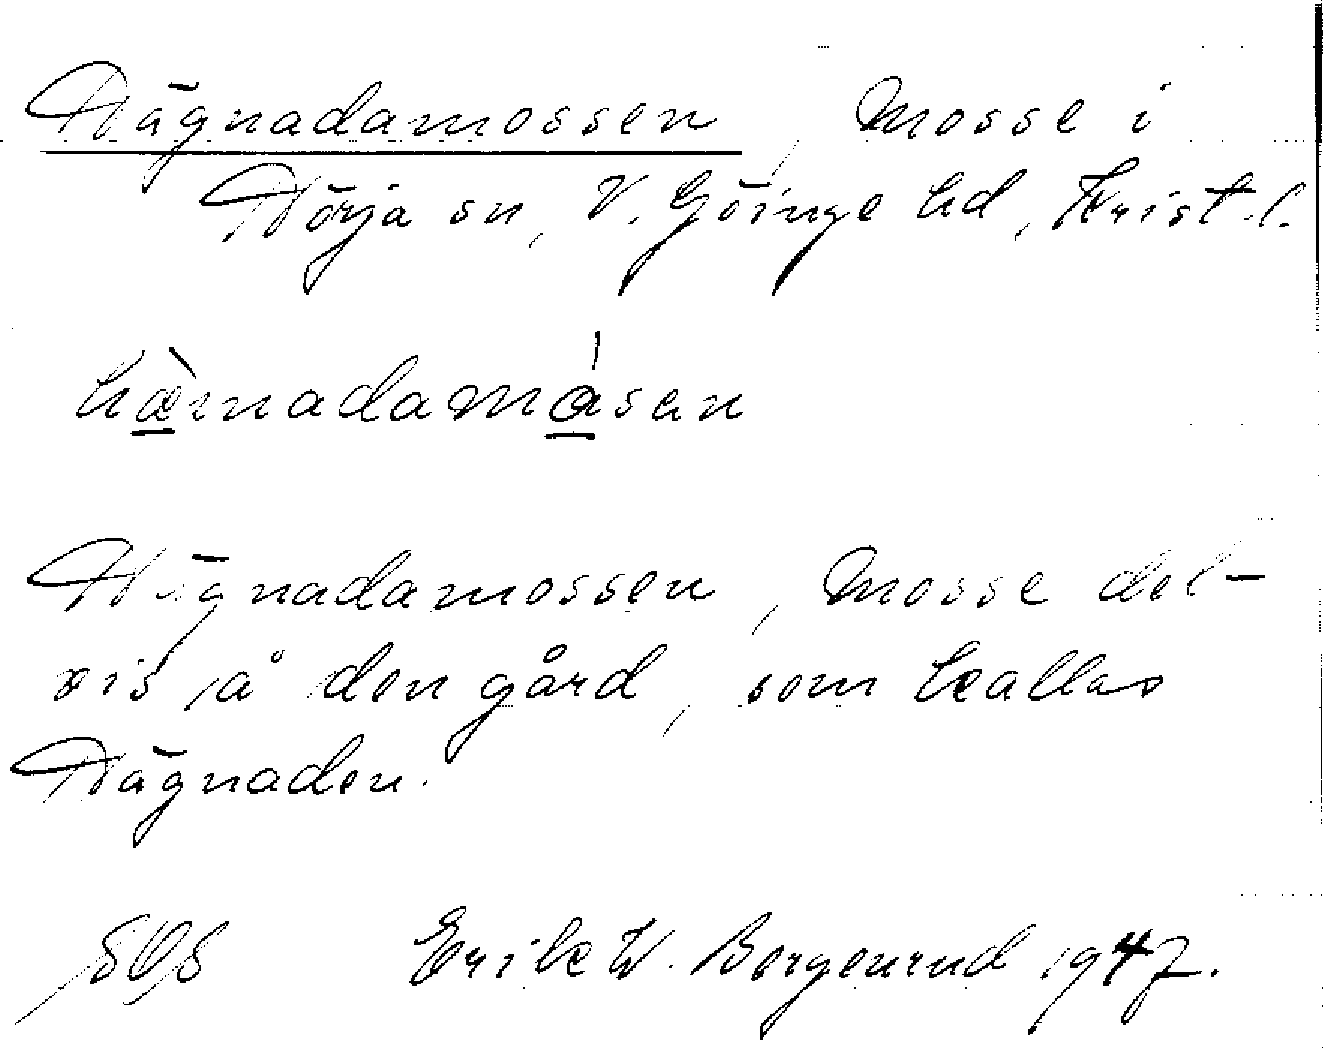 Hägnadamossen, Mosse i
Hörja sn, V. Göinge hd, Krist. l.
hæ̀inadamåsen
Hägnadamossen, Mosse del-
vis å den gård, som kallas
Hägnaden.
SOS Erik W. Bergenrud 1947.